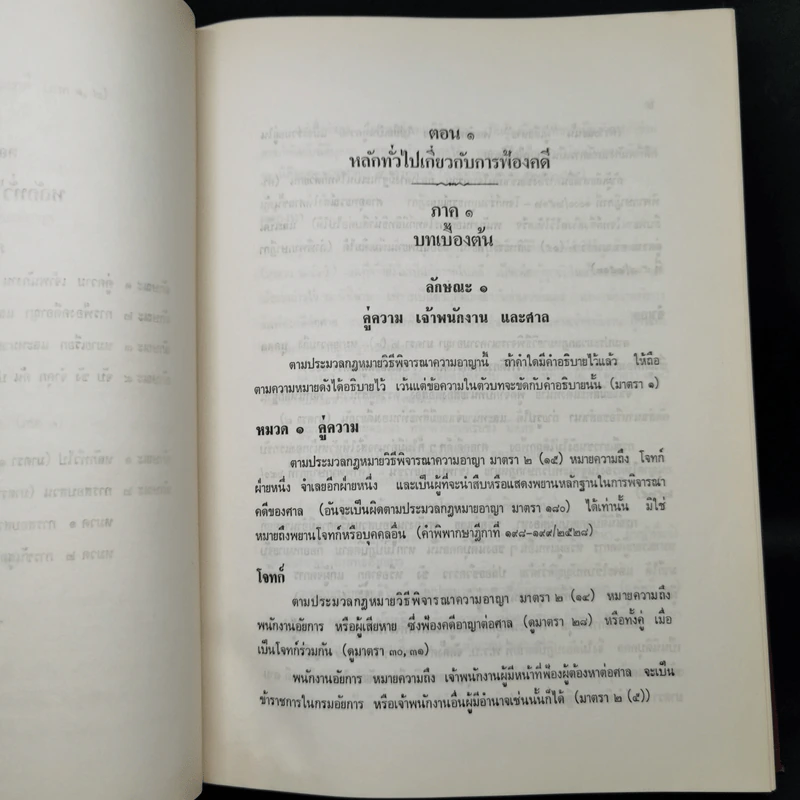 ตอน ๑
หลักทั่วไปเกี่ยวกับการฟ้องคดี
ภาค ๑
บทเบื้องต้น
ลักษณะ ๑
คู่ความ เจ้าพนักงาน และศาล
ตามประมวลกฎหมายวิธีพิจารณาความอาญานี้ ถ้าคำใดมีคำอธิบายไว้แล้ว ให้ถือ
ตามความหมายดังได้อธิบายไว้ เว้นแต่ข้อความในตัวบทจะขัดกับคำอธิบายนั้น (มาตรา ๑)
หมวด ๑ คู่ความ
ตามประมวลกฎหมายวิธีพิจารณาความอาญา มาตรา ๒ (๑๕) หมายความถึง โจทก์
ฝ่ายหนึ่ง จำเลยอีกฝ่ายหนึ่ง และเป็นผู้ที่จะนำสืบหรือแสดงพยานหลักฐานในการพิจารณา
คดีของศาล (อันจะเป็นผิดตามประมวลกฎหมายอาญา มาตรา ๑๘๐) ได้เท่านั้น มิใช่
หมายถึงพยานโจทก์หรือบุคคลอื่น (คำพิพากษาฎีกาที่ ๑๙๘-๑๙๙/๒๕๒๘)
โจทก์
ตามประมวลกฎหมายวิธีพิจารณาความอาญา มาตรา ๒ (๑๔) หมายความถึง
พนักงานอัยการ หรือผู้เสียหาย ซึ่งฟ้องคดีอาญาต่อศาล (ดูมาตรา ๒๘) หรือทั้งคู่ เมื่อ
เป็นโจทก์ร่วมกัน (ดูมาตรา ๓๐, ๓๑)
พนักงานอัยการ หมายความถึง เจ้าพนักงานผู้มีหน้าที่ฟ้องผู้ต้องหาต่อศาล จะเป็น
ข้าราชการในกรมอัยการ หรือเจ้าพนักงานอื่นผู้มีอำนาจเช่นนั้นก็ได้ (มาตรา ๒ (๕))